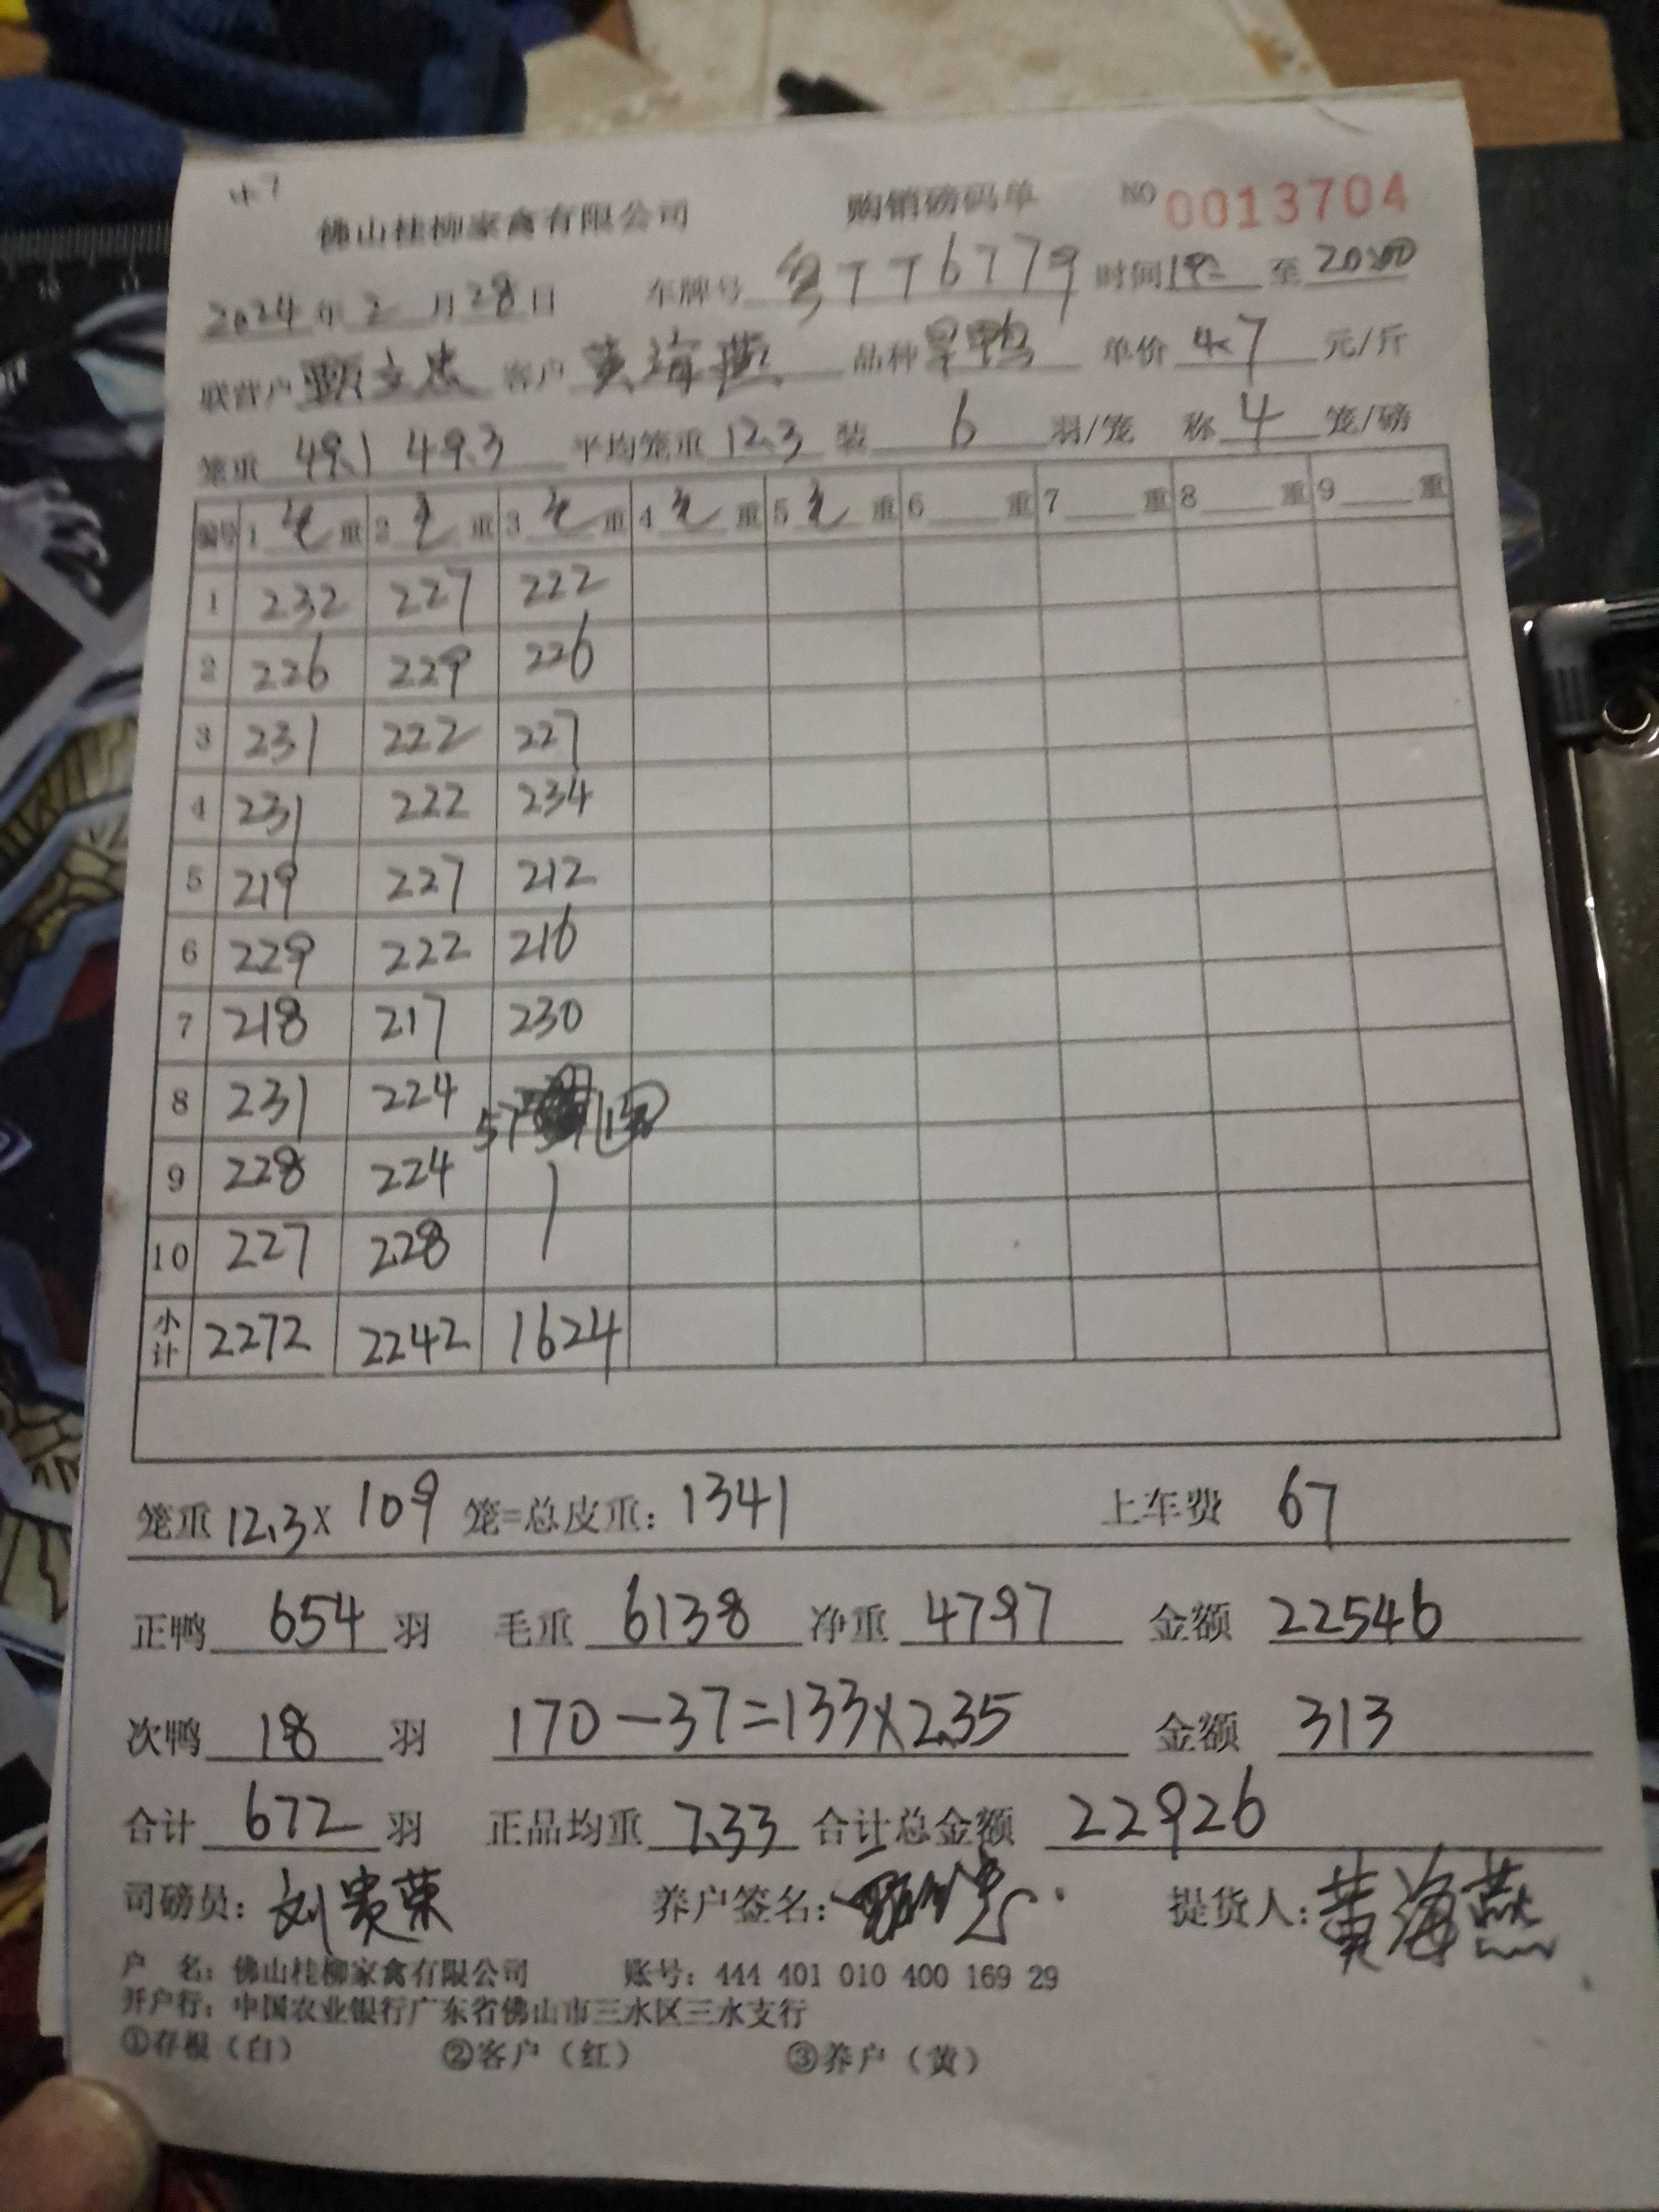 47
佛山桂柳家禽有限公司 购销磅码单 NO 0013704
2024年2月28日 车牌号 粤TT6779 时间19: 至20:00
联营户 甄立忠 客户 黄海燕 品种 旱鸭 单价 4.7 元/斤
笼重 49.1 49.3 平均笼重 12.3 装 6 羽/笼 称 4 笼/磅
编号 1 毛 重 2 毛 重 3 毛 重 4 毛 重 5 毛 重 6 重 7 重 8 重 9 重
1 232 227 222
2 226 229 226
3 231 222 227
4 231 222 234
5 219 227 212
6 229 222 216
7 218 217 230
8 231 224 57
9 228 224
10 227 228
小计 2272 2242 1624
笼重 12.3 x 109 笼=总皮重: 1341 上车费 67
正鸭 654 羽 毛重 6138 净重 4797 金额 22546
次鸭 18 羽 170-37=133x2.35 金额 313
合计 672 羽 正品均重 7.33 合计总金额 22926
司磅员: 刘贵荣 养户签名: 提货人: 黄海燕
户 名: 佛山桂柳家禽有限公司 账号: 444 401 010 400 169 29
开户行: 中国农业银行广东省佛山市三水区三水支行
①存根（白） ②客户（红） ③养户（黄）